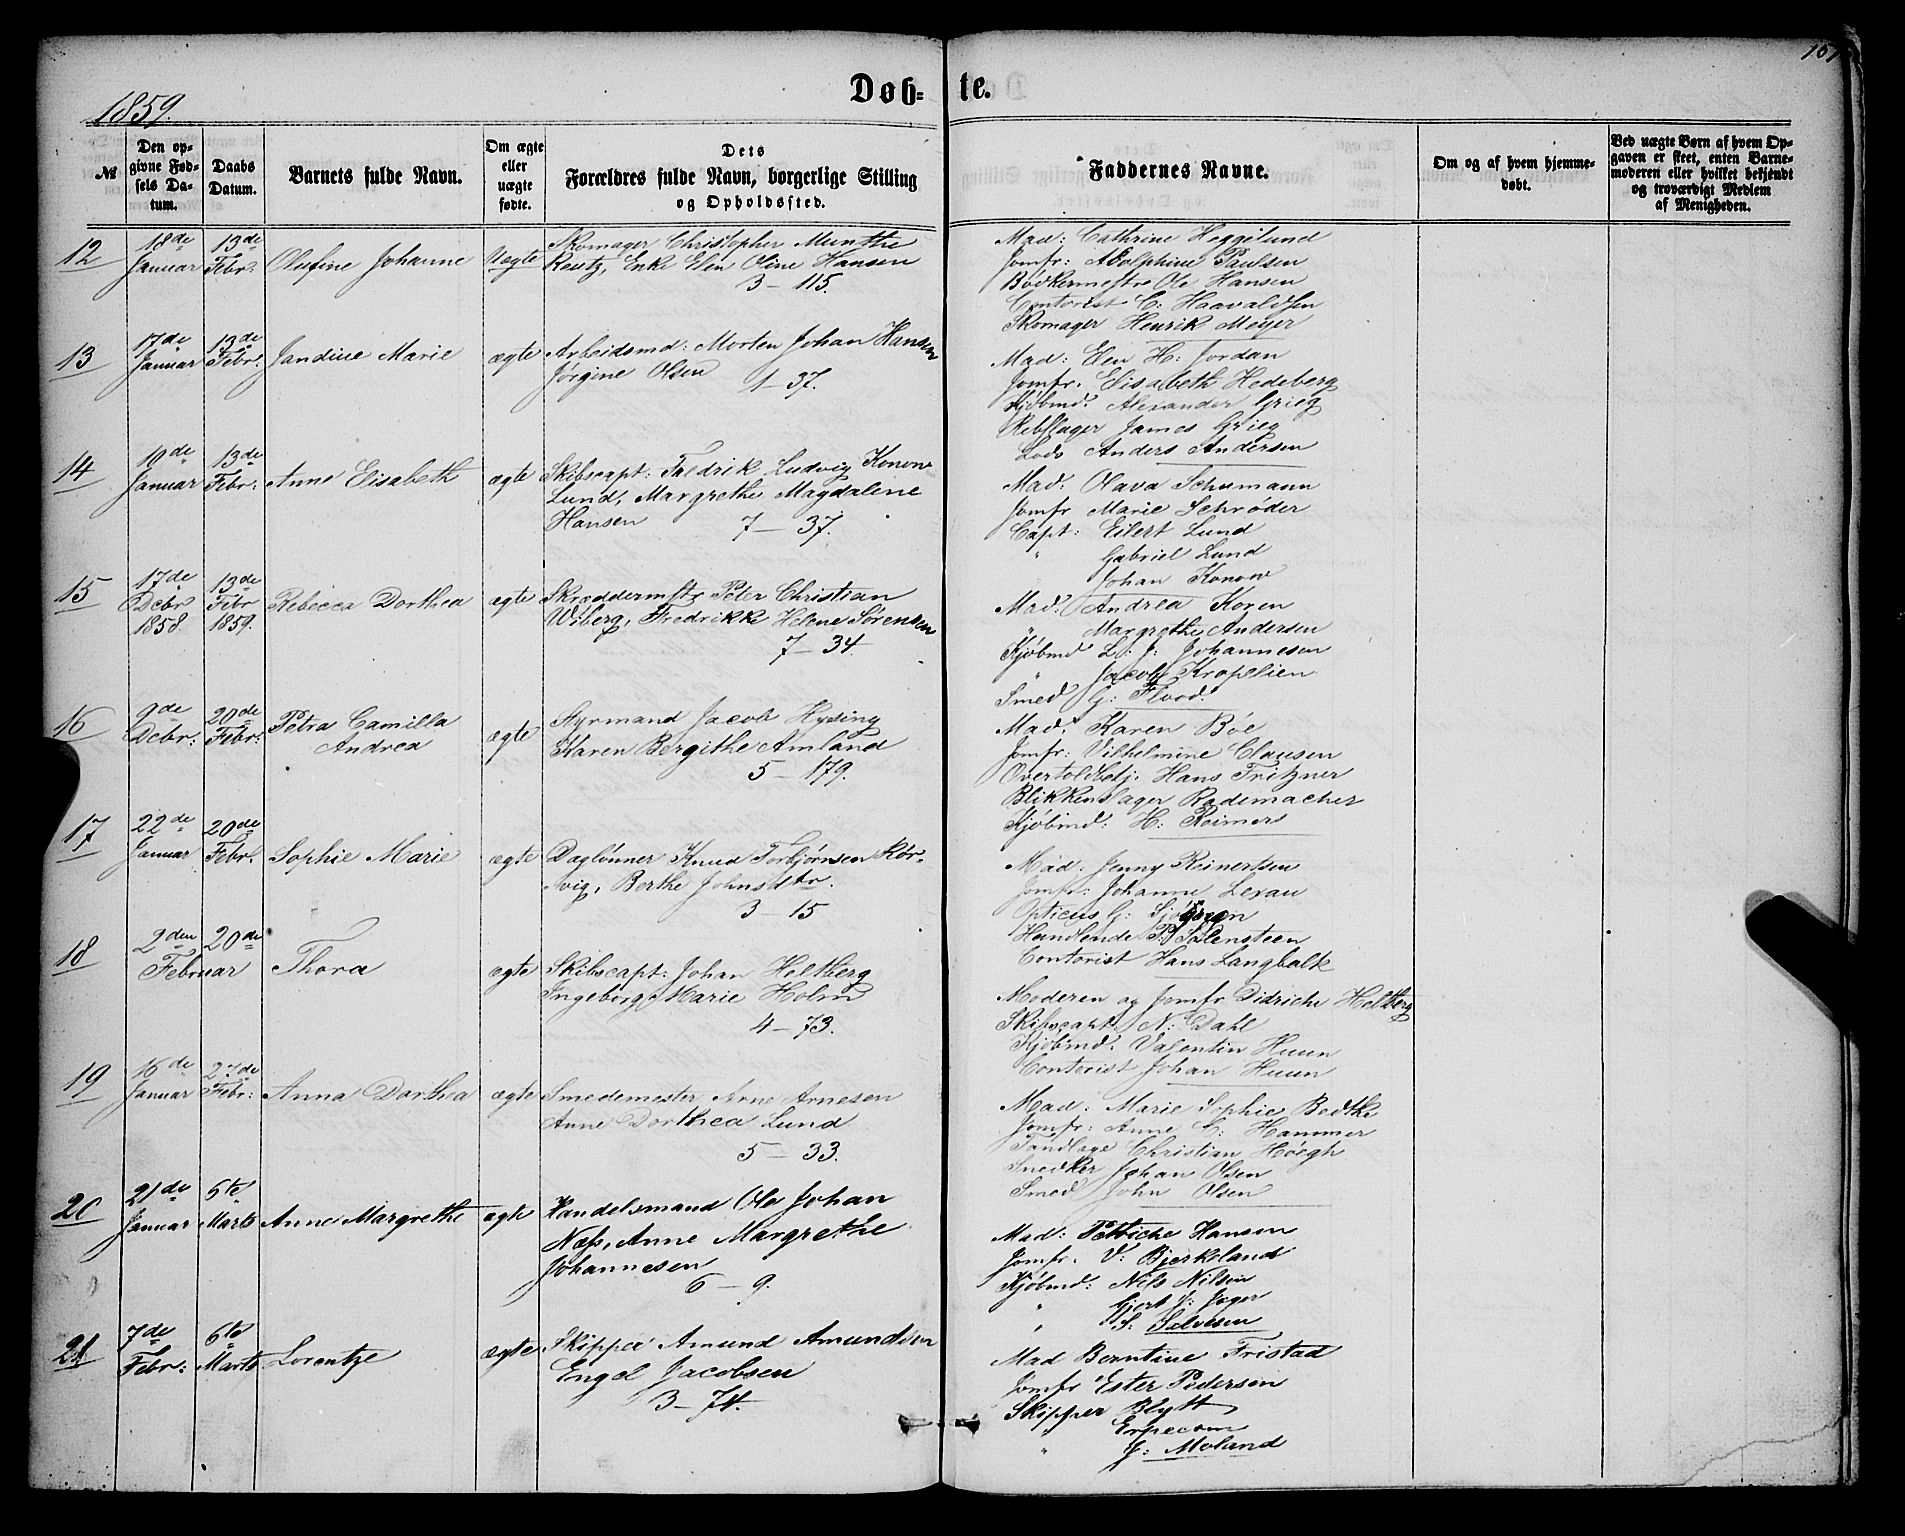 1859.
Døb- te.
№
Den opgivne Fødsels Datum.
Daabs Datum.
Barnets fulde Navn.
Om ægte eller uægte fødte.
Dets Forældres fulde Navn, borgerlige Stilling og Opholdssted.
Faddernes Navne.
Om og af hvem hjemmedøbt.
Ved uægte Børn af hvem Opgaven er skeet, enten Barnemoderen eller hvilket bekjendt og troværdigt Medlem af Menigheden.
12
18de Januar
13de Febr.
Olufine Johanne
Uægte
Skomager Christopher Munthe
Reutz, Enke Elen Oline Hansen
3 - 115.
Mad: Cathrine Heggelund
Jomfr: Adolphine Paulsen
Bødkermestr Ole Hansen
Contorist C: Haavaldsen
Skomager Henrik Meyer
13
17de Januar
13de Febr:
Jandine Marie
ægte
Arbeidsmd: Morten Johan Hansen
Jørgine Olsen
1 - 37.
Mad: Elen H: Jordan
Jomfr. Elisabeth Hedeberg
Kjøbmd. Alexander Grieg
Rebslager James Grieg
Lods Anders Andersen
14
19de Januar
13de Febr:
Anne Elisabeth
ægte
Skibscapt: Fredrik Ludvig Konow
Lund, Margrethe Magdalene
Hansen
7 - 37.
Mad: Olava Schumann
Jomfr Marie Schrøder
Capt: Eilert Lund
" Gabriel Lund
Johan Konow
15
17de Debr 1858.
13de Febr 1859.
Rebecca Dorthea
ægte
Skræddermstr Peter Christian
Wiberg, Fredrikke Helene Sørensen
7 - 34.
Mad: Andrea Koren
" Margrethe Andersen
Kjøbmd L: J: Johannesen
" Jacob Kropelien
Smed G: Flood.
16
9de Debr:
20de Febr:
Petra Camilla
Andrea
ægte
Styrmand Jacob Hysing
Karen Bergithe Amland
5 - 179.
Mad. Karen Bøe
Jomfr: Vilhelmine Clausen
Overtoldbetj. Hans Fritzner
Blikkenslager Rademacher
Kjøbmd: H: Reimers
17
22de Januar
20de Febr.
Sophie Marie
ægte
Daglønner Knud Torbjørnsen Kør-
vig, Berthe Johnsdtr.
3 - 15
Mad: Jenny Reinertsen
Jomfr: Johanne Lexau
Opticus G: Sjøgren
Handlende P: Salensteen
Contorist Hans Langbalk
18
2den Februar
20de
Thora
ægte
Skibscapt: Johan Heltberg
Ingeborg Marie Holm
4 - 73.
Moderen og Jomfr Didriche Heltberg
Skibscapt: N: Dahl
Kjøbmd. Valentin Huun
Contorist Johan Huun
19
16de Januar
27de Febr:
Anna Dorthea
ægte
Smedemester Arne Arnesen
Anne Dorthea Lund
5 - 33.
Mad: Marie Sophie Bedtke
Jomfr: Anne C: Hammer
Tandlæge Christian Høegh
Snedker Johan Olsen
Smed John Olsen
20
21de Januar
6te Marts
Anne Margrethe
ægte
Handelsmand Ole Johan
Næss, Anne Margrethe
Johannesen
6 - 9.
Mad: Hansen
Jomfr. V: Bjerkeland
Kjøbmd: Nils Nilsen
" Gjert J: Jæger
" S: Salvesen
21
7de Febr:
6te Marts
Lorentze
ægte
Skipper Amund Amundsen
Engel Jacobsen
3 - 74.
Mad Berntine Fristad
Jomfr Ester Pedersen
Skipper Blytt
Erpecom
" J: Moland